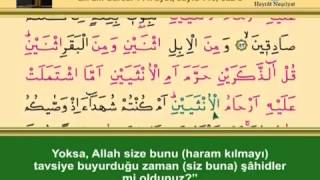 Hayrât Neşriyat
صَادِقِينَ وَمِنَ الْاِبِلِ اثْنَيْنِ وَمِنَ الْبَقَرِ اثْنَيْنِۜ
قُلْ آٰلذَّكَرَيْنِ حَرَّمَ اَمِ الْاُنْثَيَيْنِ اَمَّا اشْتَمَلَتْ
عَلَيْهِ اَرْحَامُ الْاُنْثَيَيْنِۜ اَمْ كُنْتُمْ شُهَدَٓاءَ اِذْ وَصّٰيكُمُ
Yoksa, Allah size bunu (haram kılmayı)
tavsiye buyurduğu zaman (siz buna) şâhidler
mi oldunuz?”